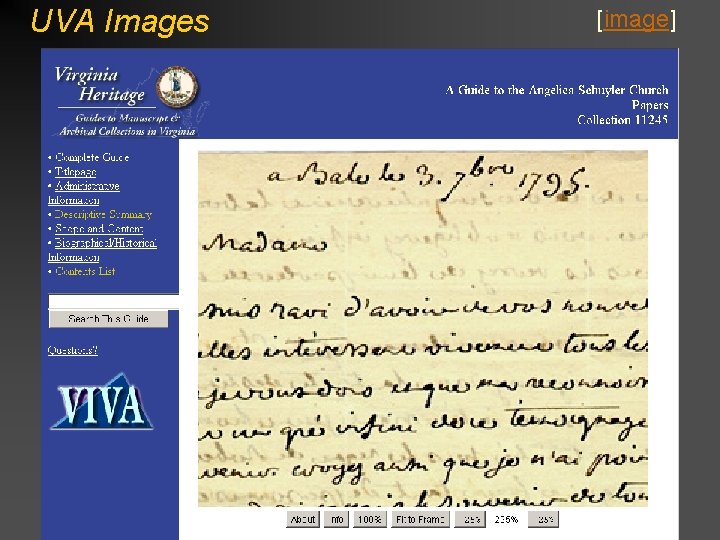 UVA Images
[image]
Virginia
Heritage
Guides to Manuscript &
Archival Collections in Virginia
A Guide to the Angelica Schuyler Church
Papers
Collection 11245
• Complete Guide
• Titlepage
• Administrative
Information
• Descriptive Summary
• Scope and Content
• Biographical/Historical
Information
• Contents List
Search This Guide
Questions?
VIVA
a Bale 3. 7bre 1795.
Madame
suis ravi d'avoir de vos nouvel
elles intéressent vivement tous les
je vous dois et que ma reconnois
une gré infini de ce temoignage
venir. croyez aussi que je n'ai poin
venir de to
About
Info
100%
Fit to Frame
-25%
235%
25%